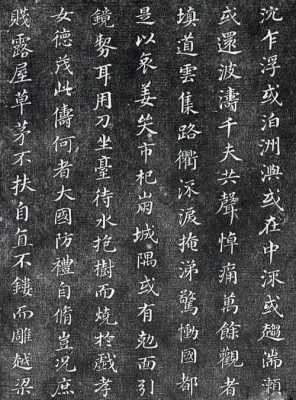 沉乍浮或泊洲嶼或在中流或趨湍瀨
或還波濤千夫共聲悼痛萬餘觀者
填道雲集路衢流淚掩涕驚慟國都
是以哀姜哭市杞崩城隅或有剋面引
鏡剺耳用刀坐臺待水抱樹而燒於戲孝
女德茂此儔何者大國防禮自脩豈況庶
賤露屋草茅不扶自直不鏤而雕越梁